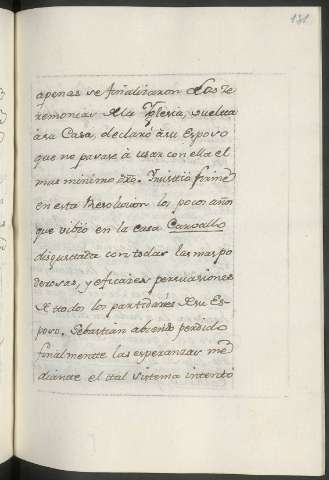 131.
apenas se finalizaron las ce
remonias de la Yglesia, vuelta
à su Casa, declaró à su Esposo
que no pasase à usar con ella el
mas minimo dro. Insistió firme
en esta Resolucion los pocos años
que vibió en la casa Carvallo
disgustada con todas las mas po
derosas, y eficases persuasiones
de todos los partidarios de su Es-
poso. Sebastian abiendo perdido
finalmente las esperanzas me
diante el tal sistema intentó